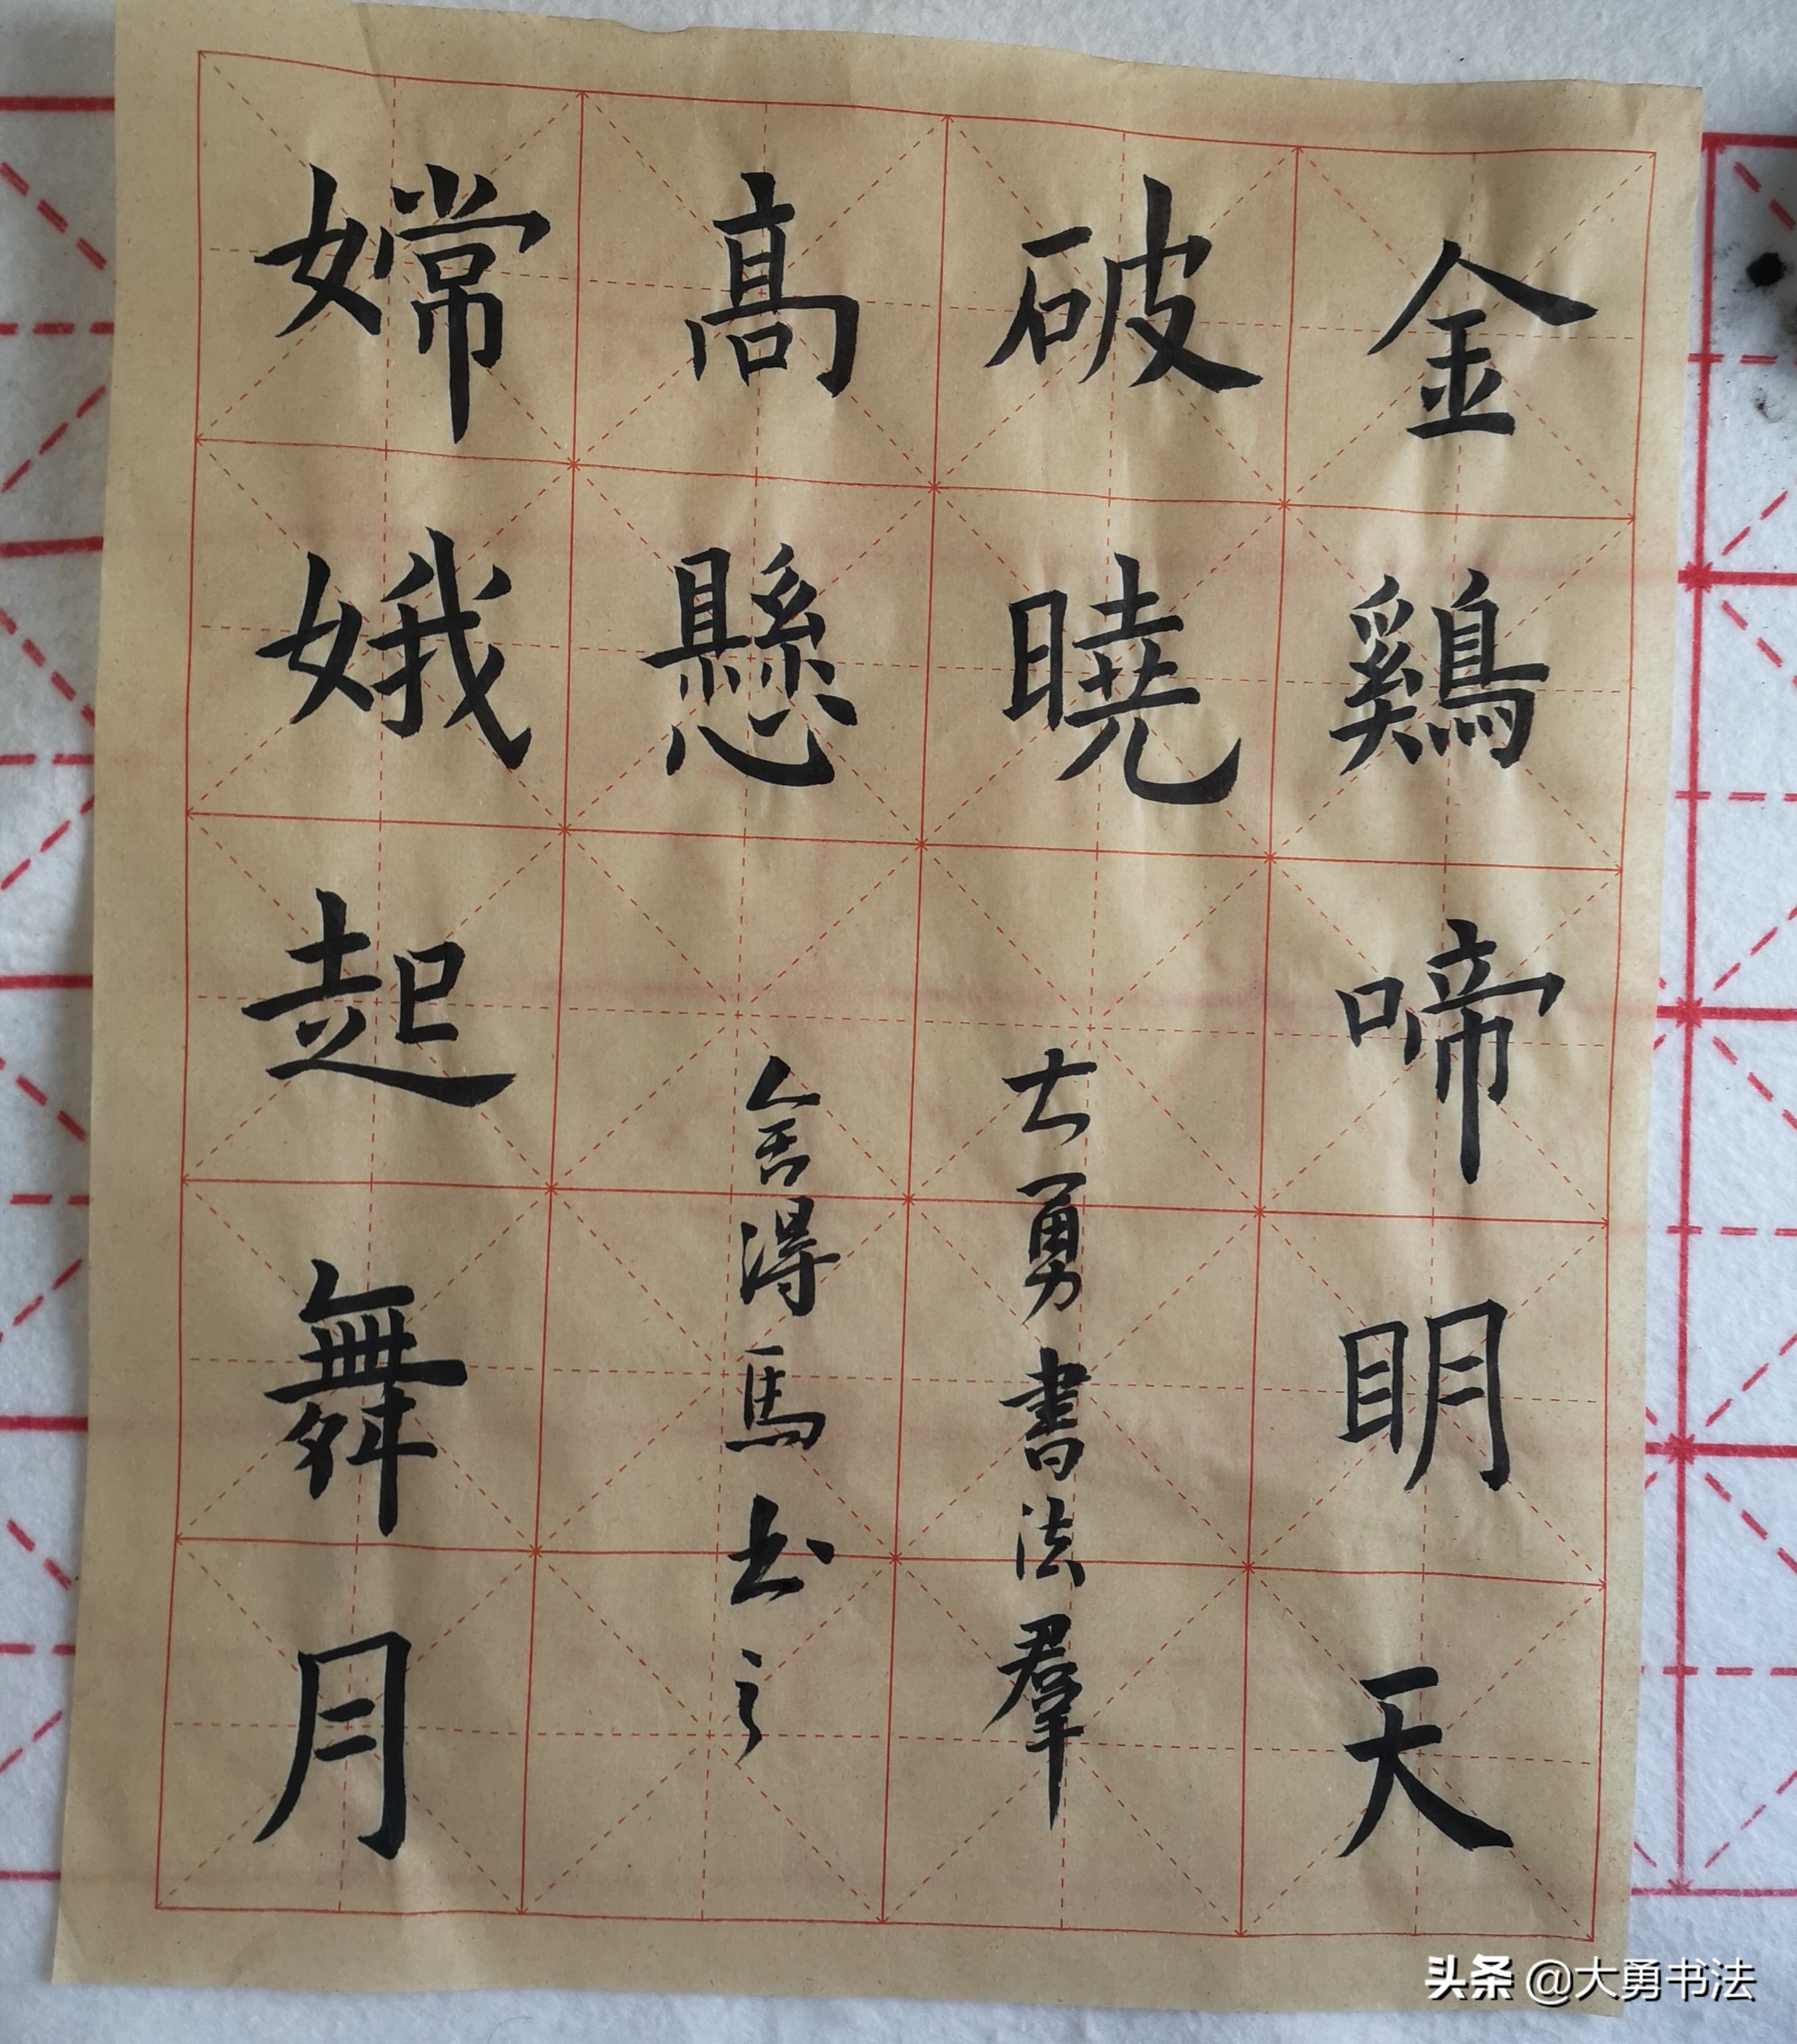 金鷄啼眀天
破曉
大勇書法羣
髙懸
舍得馬书之
嫦娥起舞月
头条 @大勇书法